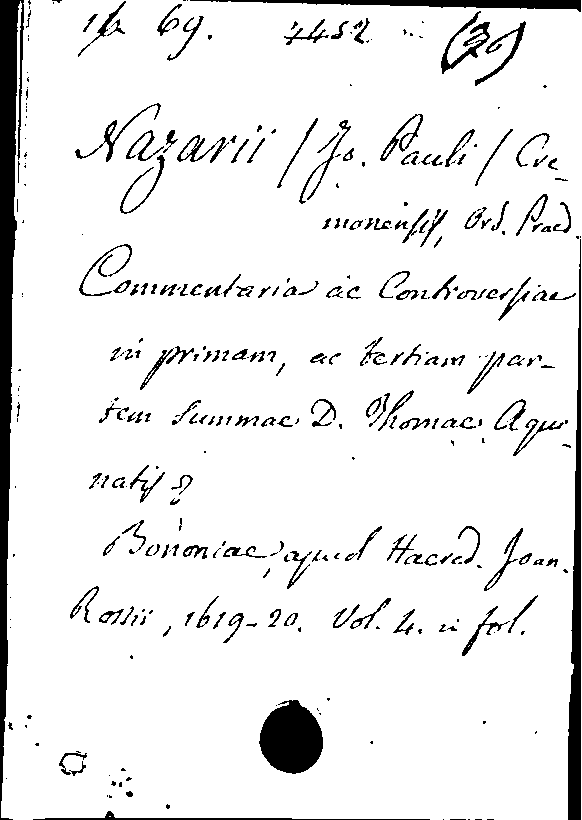 69. 7452 (30)
Nazarii / Jo. Pauli / Cre-
monensis, Ord. Praed.
Commentaria ac Controversiae
in primam, ac tertiam par-
tem Summae D. Thomae Aqui-
natis
Bononiae, apud Haered. Joan.
Rossii, 1619-20. Vol. 4. in fol.